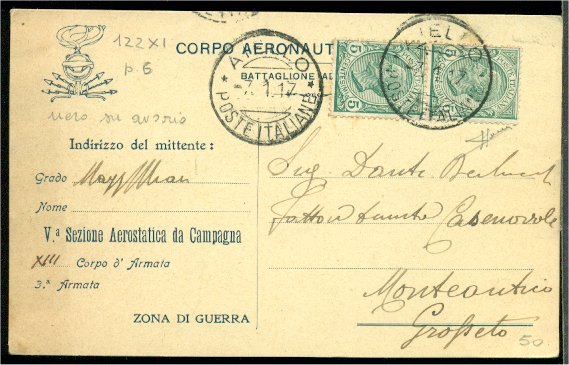 122 XI
p. 6
nero su avorio
CORPO AERONAUT
BATTAGLIONE AE
AIELLO
1.17
POSTE ITALIANE
5
5
AIELLO
POSTE ITALIANE
Indirizzo del mittente:
Grado
Nome
V.ª Sezione Aerostatica da Campagna
XIII Corpo d' Armata
3.ª Armata
ZONA DI GUERRA
Sig. Dante
Fattoria Casenovole
Monteantico
Grosseto
50